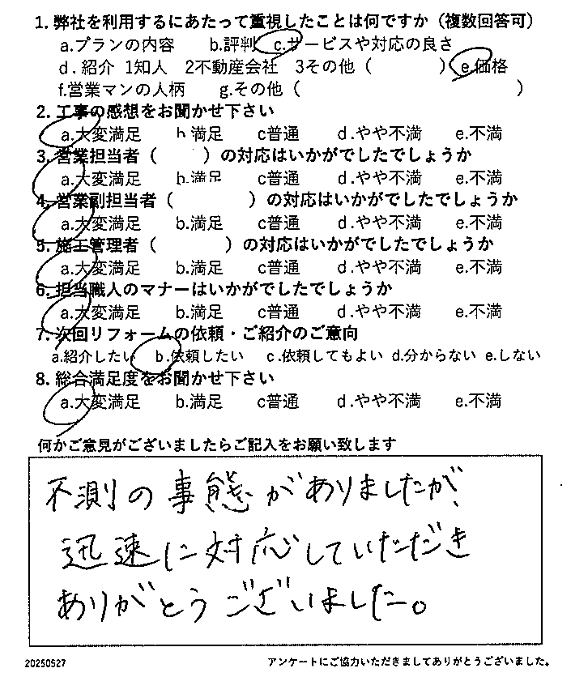 1. 弊社を利用するにあたって重視したことは何ですか（複数回答可）
a.プランの内容 b.評判 c.サービスや対応の良さ
d.紹介 1知人 2不動産会社 3その他（ ） e.価格
f.営業マンの人柄 g.その他（ ）
2. 工事の感想をお聞かせ下さい
a.大変満足 b.満足 c普通 d.やや不満 e.不満
3. 営業担当者（ ）の対応はいかがでしたでしょうか
a.大変満足 b.満足 c普通 d.やや不満 e.不満
4. 営業副担当者（ ）の対応はいかがでしたでしょうか
a.大変満足 b.満足 c普通 d.やや不満 e.不満
5. 施工管理者（ ）の対応はいかがでしたでしょうか
a.大変満足 b.満足 c普通 d.やや不満 e.不満
6. 担当職人のマナーはいかがでしたでしょうか
a.大変満足 b.満足 c普通 d.やや不満 e.不満
7. 次回リフォームの依頼・ご紹介のご意向
a.紹介したい b.依頼したい c.依頼してもよい d.分からない e.しない
8. 総合満足度をお聞かせ下さい
a.大変満足 b.満足 c普通 d.やや不満 e.不満
何かご意見がございましたらご記入をお願い致します
不測の事態がありましたが、
迅速に対応していただき
ありがとうございました。
20250527 アンケートにご協力いただきましてありがとうございました。